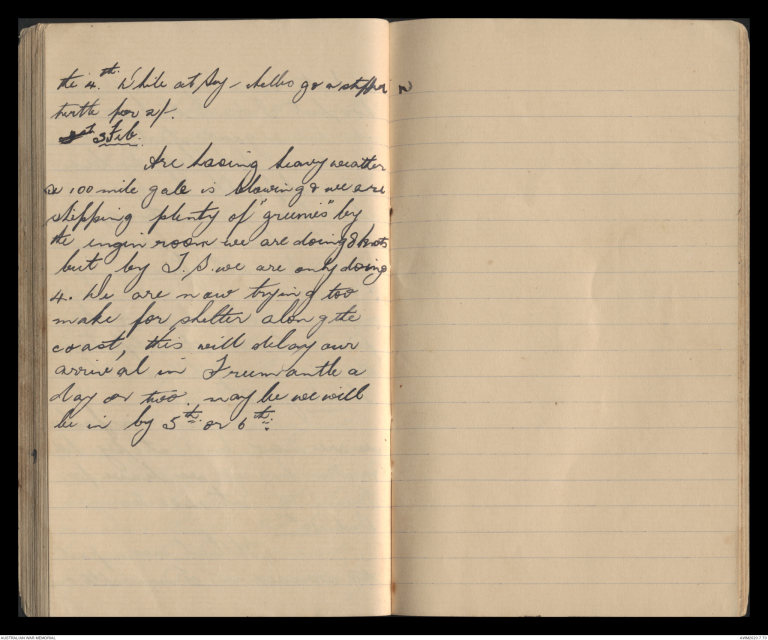 the 4.th While at Sy- got a
turtle for 2/.
3 Feb.
Are having heavy weather
a 100 mile gale is blowing & we are
shipping plenty of "greenies" by
the engin room we are doing 8 knots
but by T.S. we are only doing
4. We are now trying too
make for shelter along the
coast, this will delay our
arrival in Freemantle a
day or two. may be we will
be in by 5th or 6th.
AUSTRALIAN WAR MEMORIAL